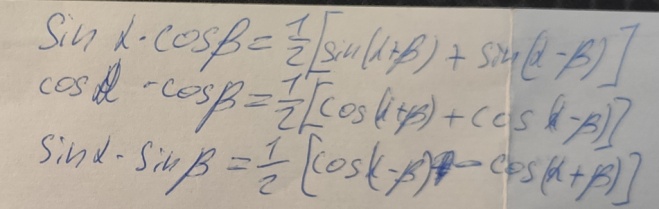 sin α · cosβ = 1/2 [sin(α+β) + sin(α-β)]
cosα · cosβ = 1/2 [cos(α+β) + cos(α-β)]
sinα · sinβ = 1/2 [cos(α-β) - cos(α+β)]